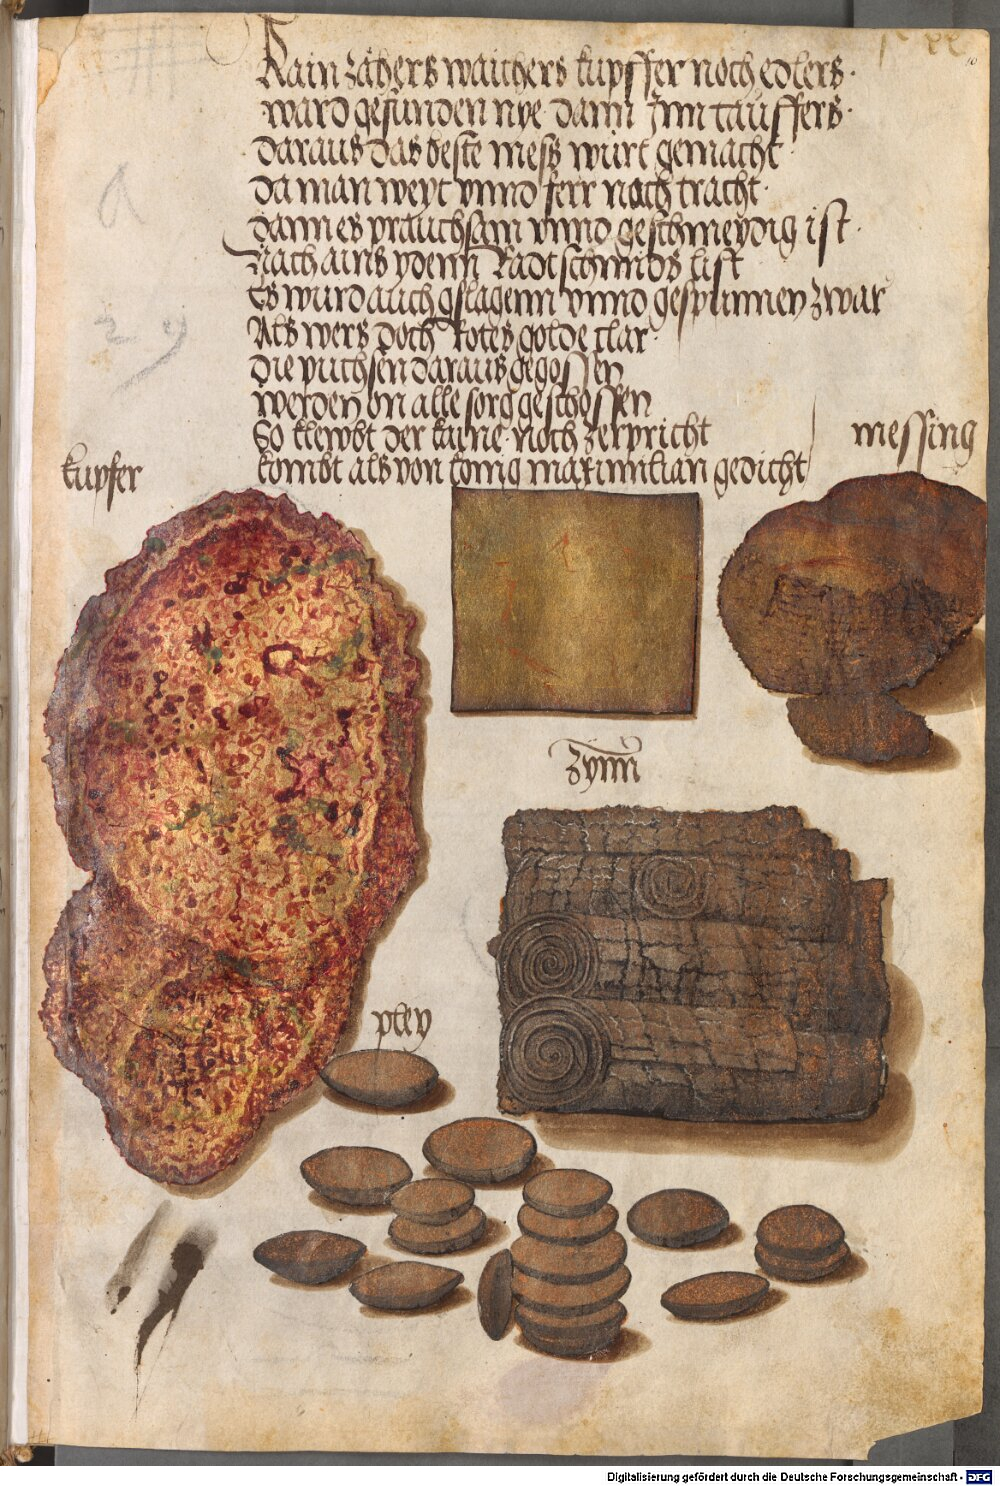 Kain zähers waichers kupffer noch edlers·
ward gefunden nye dann Inn tauffers·
daraus das beste mess würt gemacht
da man weyt vnnd ferr nach tracht·
dann es prauchsam vnnd geschmeydig ist·
Nach ains ydenn Radtschmids list
Es wurd auch gslagenn vnnd gespunnen zwar
Als wers doch Rotes golde clar·
die puchsen daraus gegossen
werden on alle sorg geschossen
So klewbt der kaine· noch zerpricht
kombt als von konig maximilian gedicht
kupfer
messing
zÿnn
pley
Digitalisierung gefördert durch die Deutsche Forschungsgemeinschaft - DFG